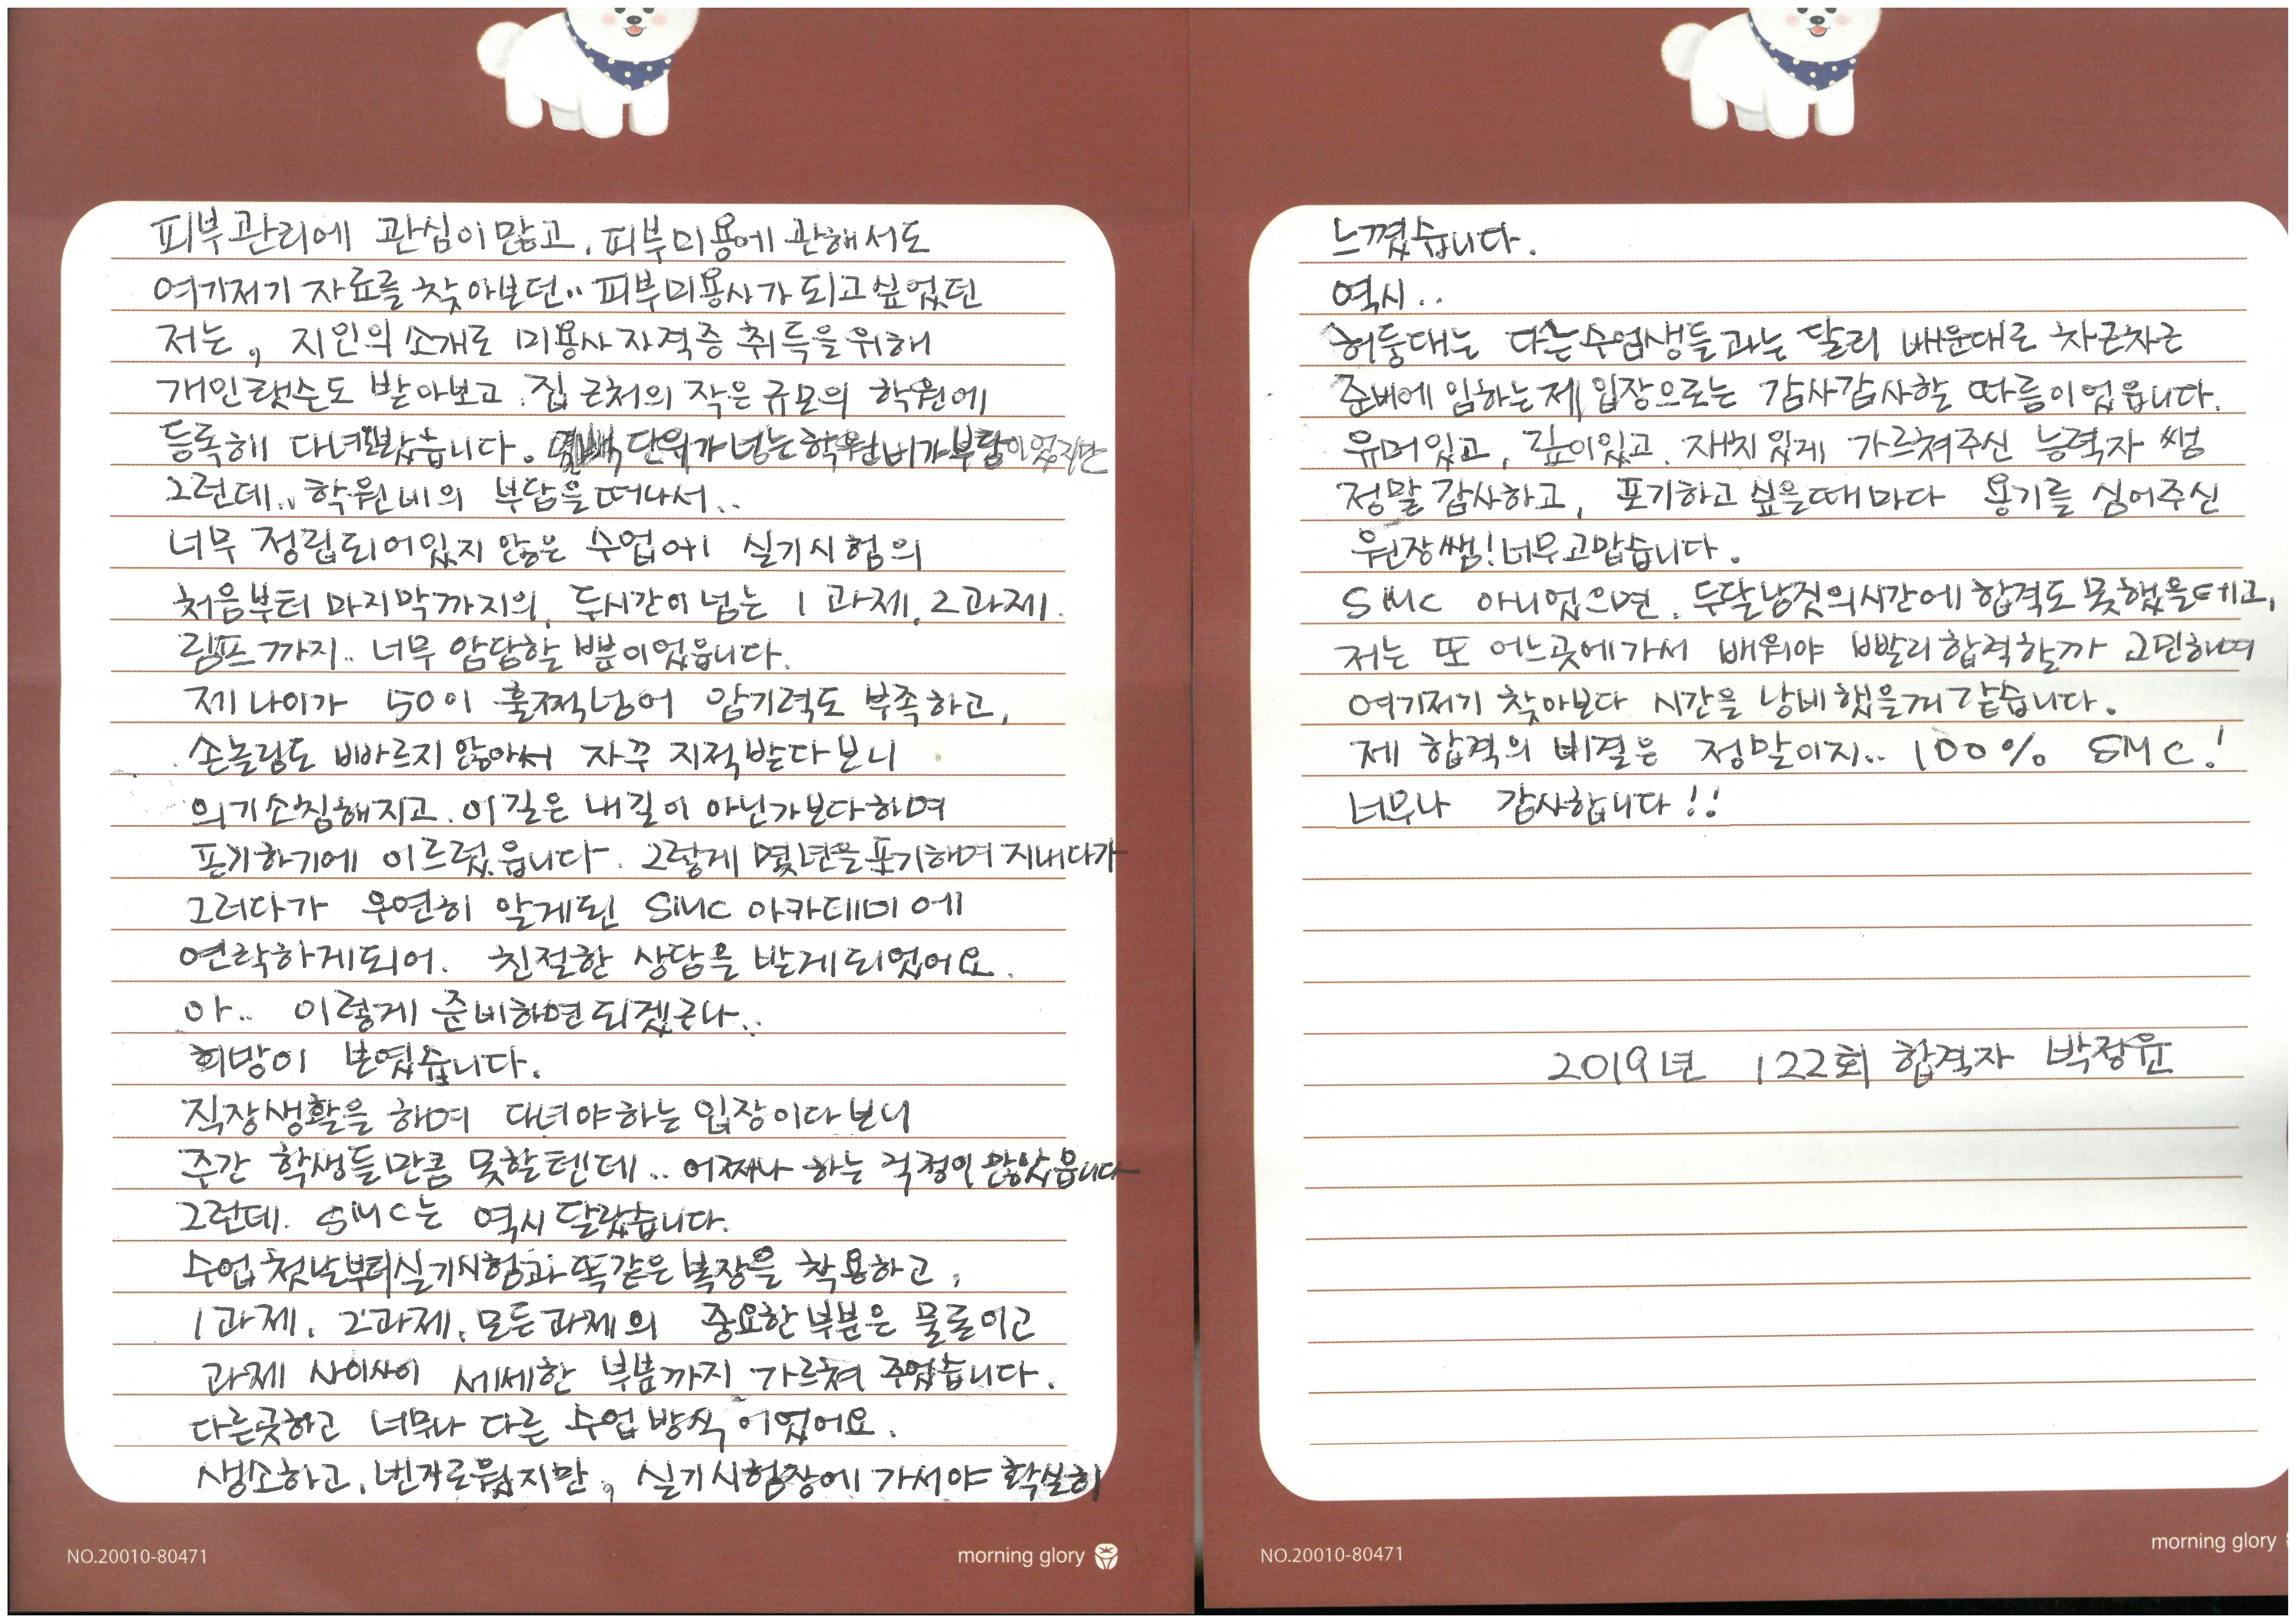 피부관리에 관심이 많고, 피부미용에 관해서도
여기저기 자료를 찾아보던.. 피부미용사가 되고싶었던
저는, 지인의 소개로 미용사자격증 취득을 위해
개인랫슨도 받아보고. 집 근처의 작은 규모의 학원에
등록해 다녀봤습니다. 몇백 단위가 넘는 학원비가 부담이었지만
그런데.. 학원비의 부담을 떠나서..
너무 정립되어있지 않은 수업에 실기시험의
처음부터 마지막까지의, 두시간이 넘는 1과제, 2과제.
림프까지.. 너무 암담할 뿐이었읍니다.
제 나이가 50이 훌쩍넘어 암기력도 부족하고,
손놀림도 빠르지 않아서 자꾸 지적받다보니
의기소침해지고. 이길은 내길이 아닌가보다하며
포기하기에 이르렀읍니다. 그렇게 몇년을 포기하며 지내다가
그러다가 우연히 알게된 SMC 아카데미에
연락하게되어. 친절한 상담을 받게되었어요.
아.. 이렇게 준비하면 되겠구나..
희망이 보였습니다.
직장생활을 하며 다녀야하는 입장이다보니
주간 학생들만큼 못할텐데.. 어쩌나 하는 걱정이 많았읍니다
그런데. SMC는 역시 달랐습니다.
수업 첫날부터 실기시험과 똑같은 복장을 착용하고,
1과제, 2과제, 모든과제의 중요한 부분은 물론이고
과제 사이사이 세세한 부분까지 가르쳐 주었습니다.
다른곳하고 너무나 다른 수업방식이었어요.
생소하고, 번거로웠지만, 실기시험장에 가서야 확실히
NO.20010-80471
morning glory
느꼈습니다.
역시..
허둥대는 다른수험생들과는 달리 배운대로 차근차근
준비에 임하는 제 입장으로는 감사감사할 따름이었읍니다.
유머있고, 깊이있고. 재치있게 가르쳐주신 능력자 쌤
정말 감사하고, 포기하고 싶을때마다 용기를 심어주신
원장쌤! 너무고맙습니다.
SMC 아니었으면. 두달남짓의시간에 합격도 못했을테고,
저는 또 어느곳에가서 배워야 빨리합격할까 고민하며
여기저기 찾아보다 시간을 낭비했을꺼같습니다.
제 합격의 비결은 정말이지.. 100% SMC!
너무나 감사합니다!!
2019년 122회 합격자 박정윤
NO.20010-80471
morning glory